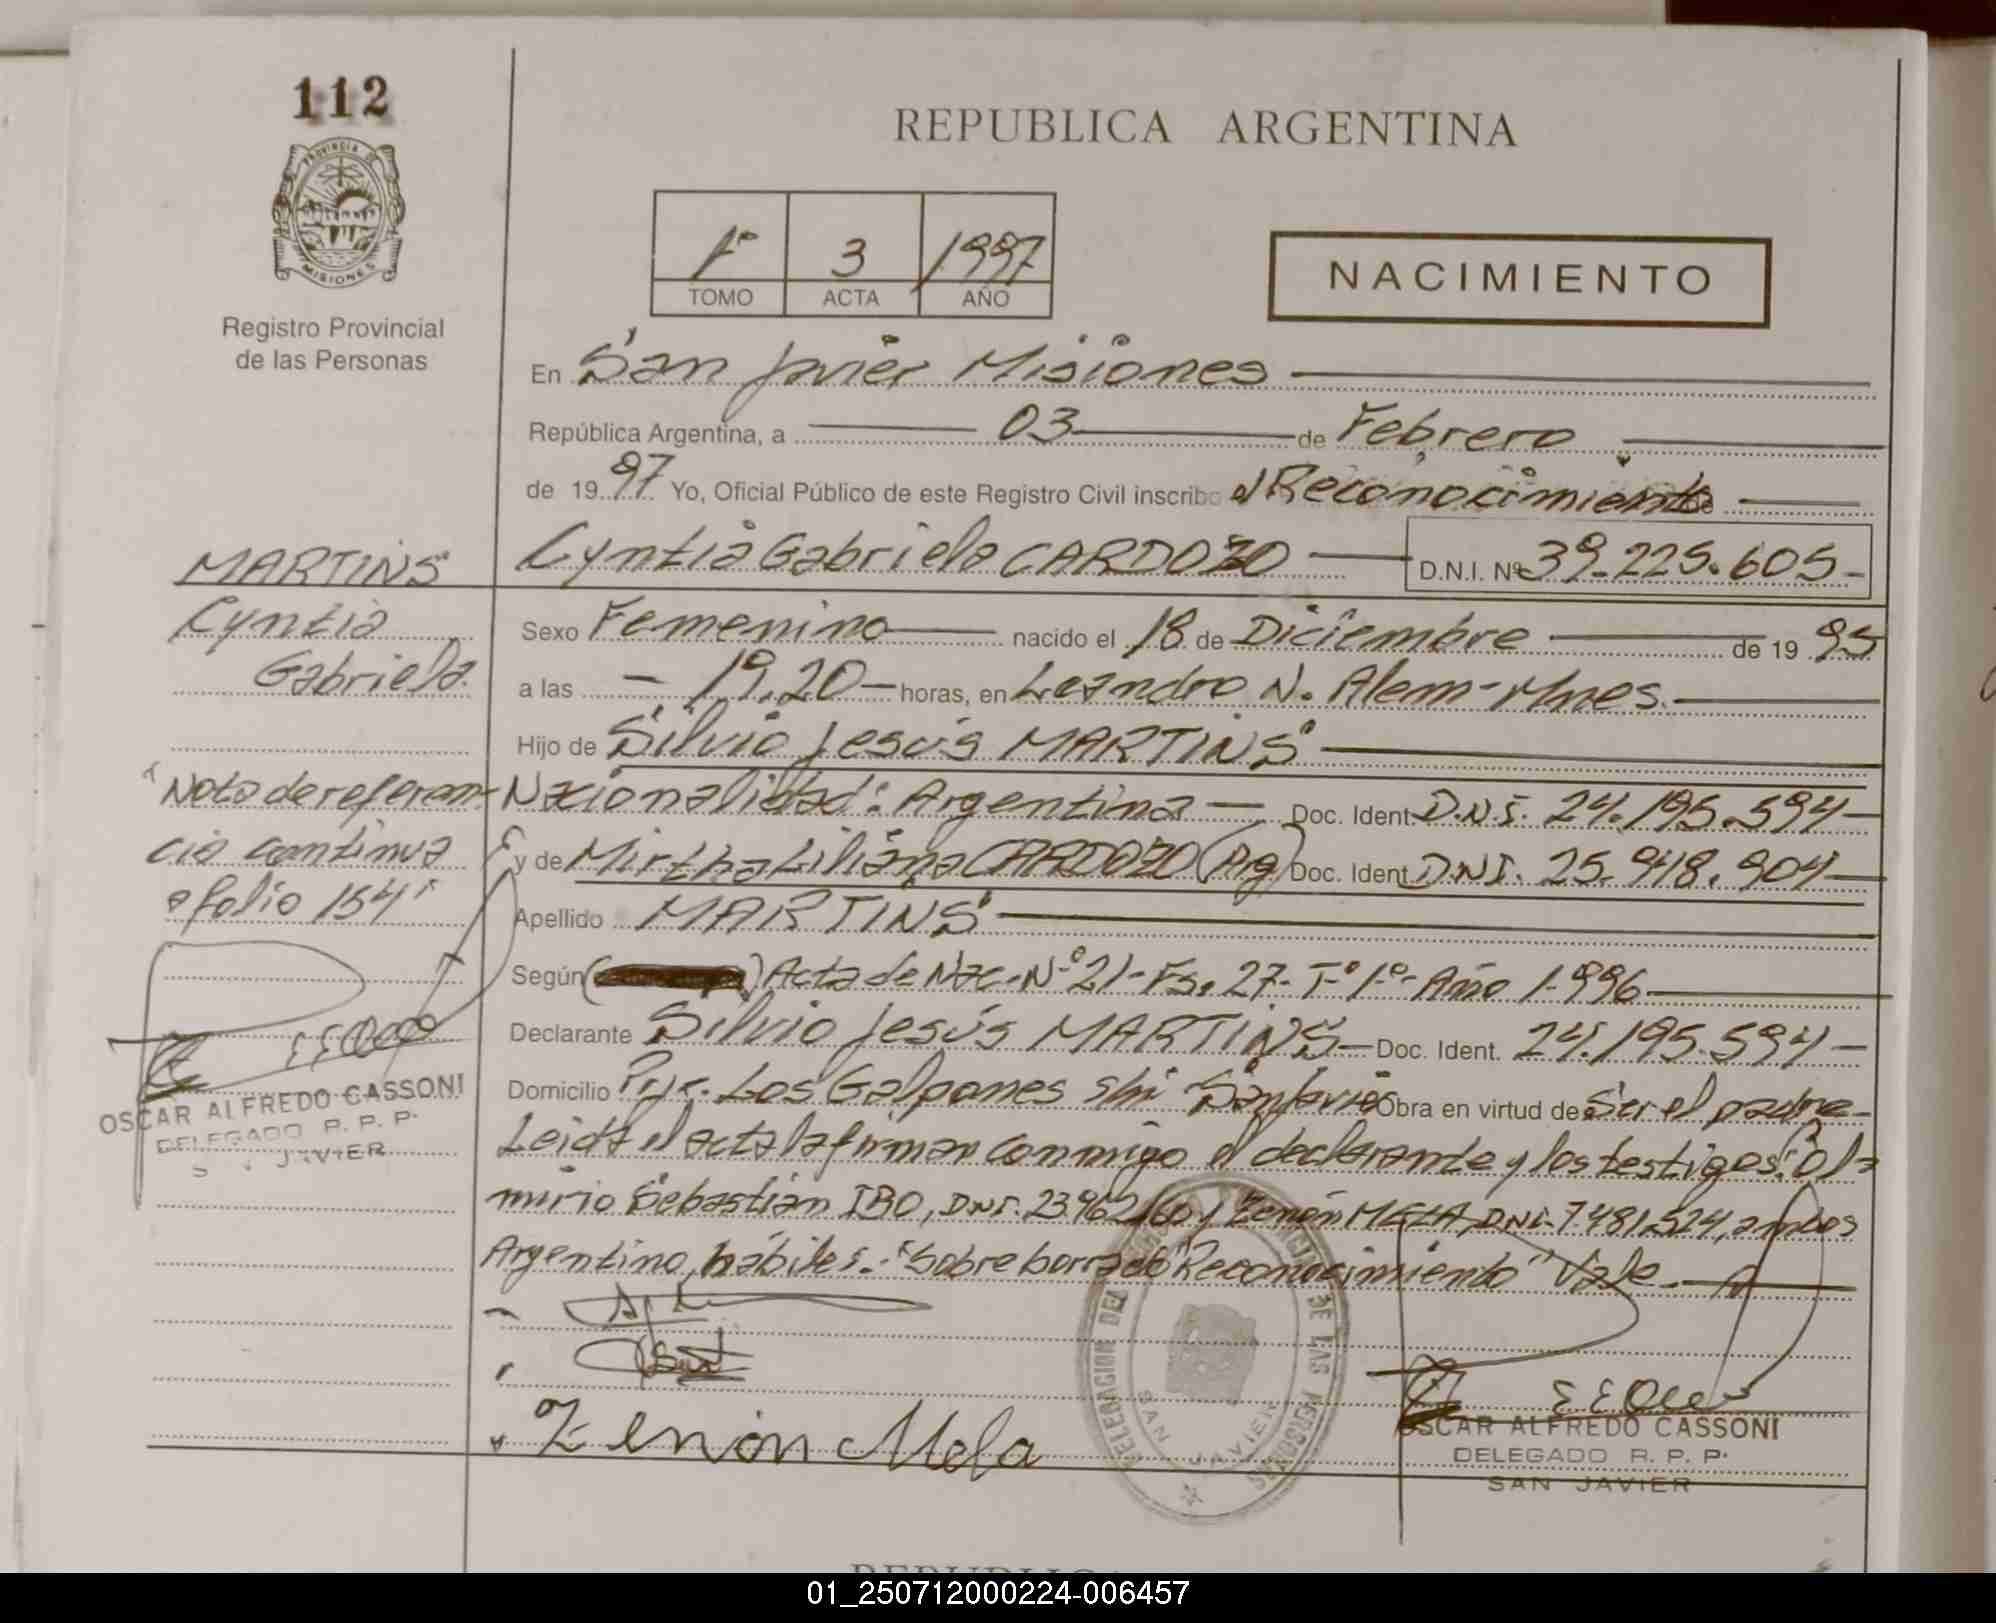 112
REPUBLICA ARGENTINA
PROVINCIA DE
MISIONES
Registro Provincial
de las Personas
1º 3 1997
TOMO ACTA AÑO
NACIMIENTO
En San Javier Misiones
República Argentina, a 03 de Febrero
de 1997 Yo, Oficial Público de este Registro Civil inscribo el Reconocimiento
MARTINS
Cyntia
Gabriela.
Cyntia Gabriela CARDOZO D.N.I. Nº 39.225.605-
Sexo Femenino nacido el 18 de Diciembre de 1995
a las - 19.20 - horas, en Leandro N. Alem-Mnes.
Hijo de Silvio Jesús MARTINS
Nacionalidad: Argentina - Doc. Ident. D.N.I. 24.195.594-
y de Mirtha Liliana CARDOZO (Arg) Doc. Ident. DNI. 25.948.904-
Apellido MARTINS
"Nota de referen-
cia continua
a folio 154"
Según ( ) Acta de Nac. Nº 21- Fs. 27- Tº 1º- Año 1.996
Declarante Silvio Jesús MARTINS - Doc. Ident. 24.195.594-
Domicilio Pje. Los Galpones S/n San Javier Obra en virtud de Ser el padre-
Leida el acta la firman conmigo el declarante y los testigos:
Sebastián IBO, DNI. 23.962.160 y Zenón MELA, DNI. 7.481.524, ambos
Argentino, hábiles.- "Sobre borrado" Reconocimiento" Vale.
OSCAR ALFREDO CASSONI
DELEGADO R. P. P.
SAN JAVIER
Zenón Mela
DELEGACION DEL REGISTRO PROVINCIAL DE LAS PERSONAS
SAN JAVIER
OSCAR ALFREDO CASSONI
DELEGADO R. P. P.
SAN JAVIER
01_250712000224-006457